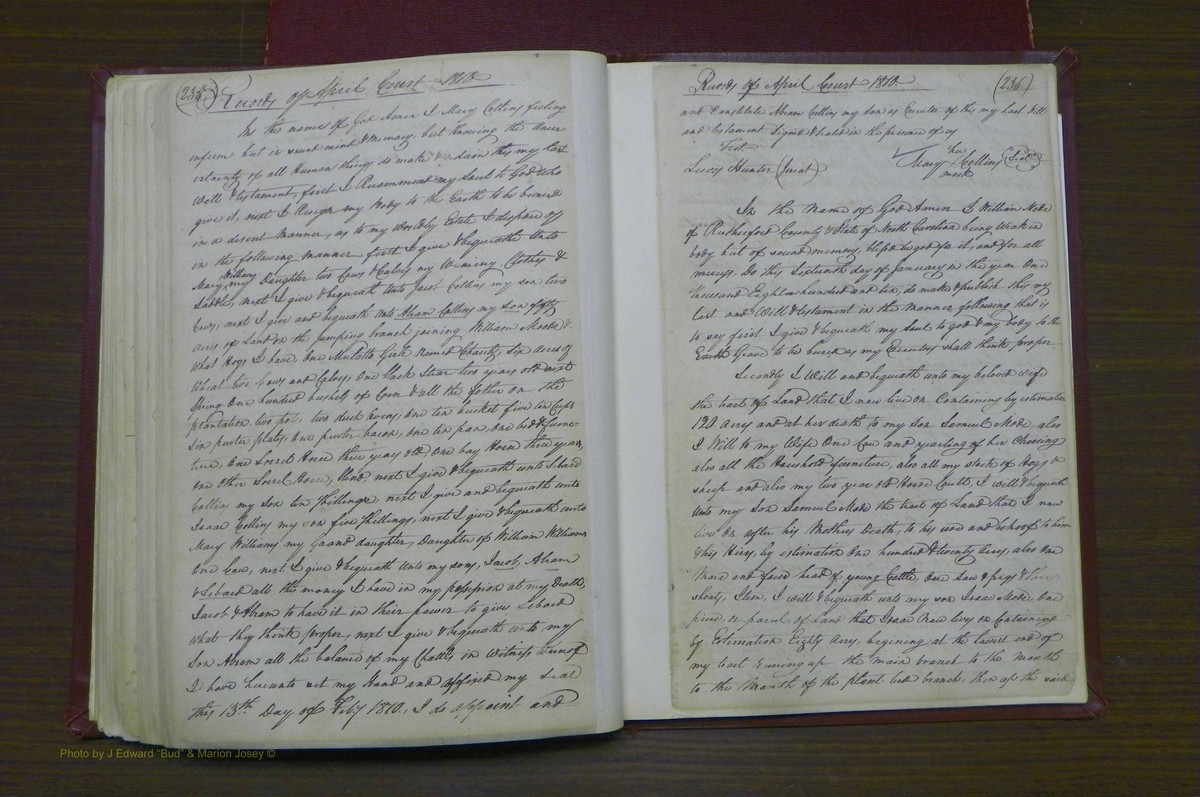 235
Records of April Court 1810
In the name of God Amen I Mary Collins feeling
infirm but in sound mind & memory, but knowing the uncer
certainty of all Human things do make & ordain this my last
Will & testament, first I Recommend my Soul to God who
give it, next I Resign my Body to the Earth to be buried
in a decent manner, as to my Worldly Estate I dispose of
in the following manner first I give & bequeathe Unto
Mary Williams my Daughter two Cows & Calves my Wearing Clothes &
Saddle, next I give & bequeath Unto Jacob Collins my son two
Cows, next I give and bequeath Unto Abram Collins my Son fifty
acres of Land on the Jumping branch joining William Moode &
what Hogs I have, One Mulatto Girle Named Charity, Six acres of
Wheat two Cows and Calves, One black Stear two years old next
Spring One hundred bushels of Corn & all the fother on the
plantation, two pots, two duch Ovens, one ten bucket five ten Cups
Six pewter plates, One pewter bason, one ten pan, one bed & furne-
ture, One Sorrel Horse three years old, One bay Horse three years,
one other Sorrel Horse, blind next I give & bequeath unto Sebard
Collins my Son ten Shillings, next I give and bequeath unto
Isaac Collins my son five Shillings, next I give & bequeath unto
Mary Williams my Grand daughter, Daughter of William Williams
One Cow, next I give & bequeath Unto my sons, Jacob, Abram
& Sebard all the money I have in my possession at my Death,
Jacob & Abram to have it in their power to give Sebard
what they think proper, next I give & bequeath unto my
Son Abram all the balance of my Chattls in Witness Whereof
I have hereunto set my Hand and affixed my Seal
this 13th Day of Feby 1810, I do appoint and
Records of April Court 1810.
236
and Constitute Abram Collins my son as Executor of this my Last Will
and testament Signd & Seald in the presence of us
Test
Lewis Hunter (Jurat)
her
Mary Collins (Seal)
mark
In the Name of God Amen I William Mode
of Rutherford County & State of North Carolina being Weak in
body but of sound memory, blessed be god for it, and for all
mercys. Do this Sixteenth day of January in the year One
thousand Eighteen hundred and ten, do make & publish this my
last and Will & testament in the Manner following that is
to say first I give & bequeath my Soul to god & my body to the
Earth Grave to be buried as my Executors shall think proper
Secondly I Will and bequeath unto my beloved wife
the tract of Land that I now live on Containing by estimation
120 acres and at her death to my Son Samuel Mode, also
I Will to my Wife One Cow and yearling of her Choosing
also all the Houshold furneture, also all my stock of Hogs &
sheep and also my two year old Horse Coult, I will & bequeath
Unto my Son Samuel Mode the tract of Land that I now
live On after his Mothers Death, to his use and behoof to him
& his Heirs, by estimation One hundred & twenty Acres, also One
Mare and four head of young Cattle, One Sow & pigs & three
shoats, Item, I will & bequeath unto my son Isaac Mode, One
piece or parcel of Land that Isaac Now lives on Containing
by Estimation Eighty Acres, begining at the lowest end of
my tract Running up the main branch to the Mouth
to the Mouth of the plant bed branch, then up the said
Photo by J Edward "Bud" & Marion Josey ©